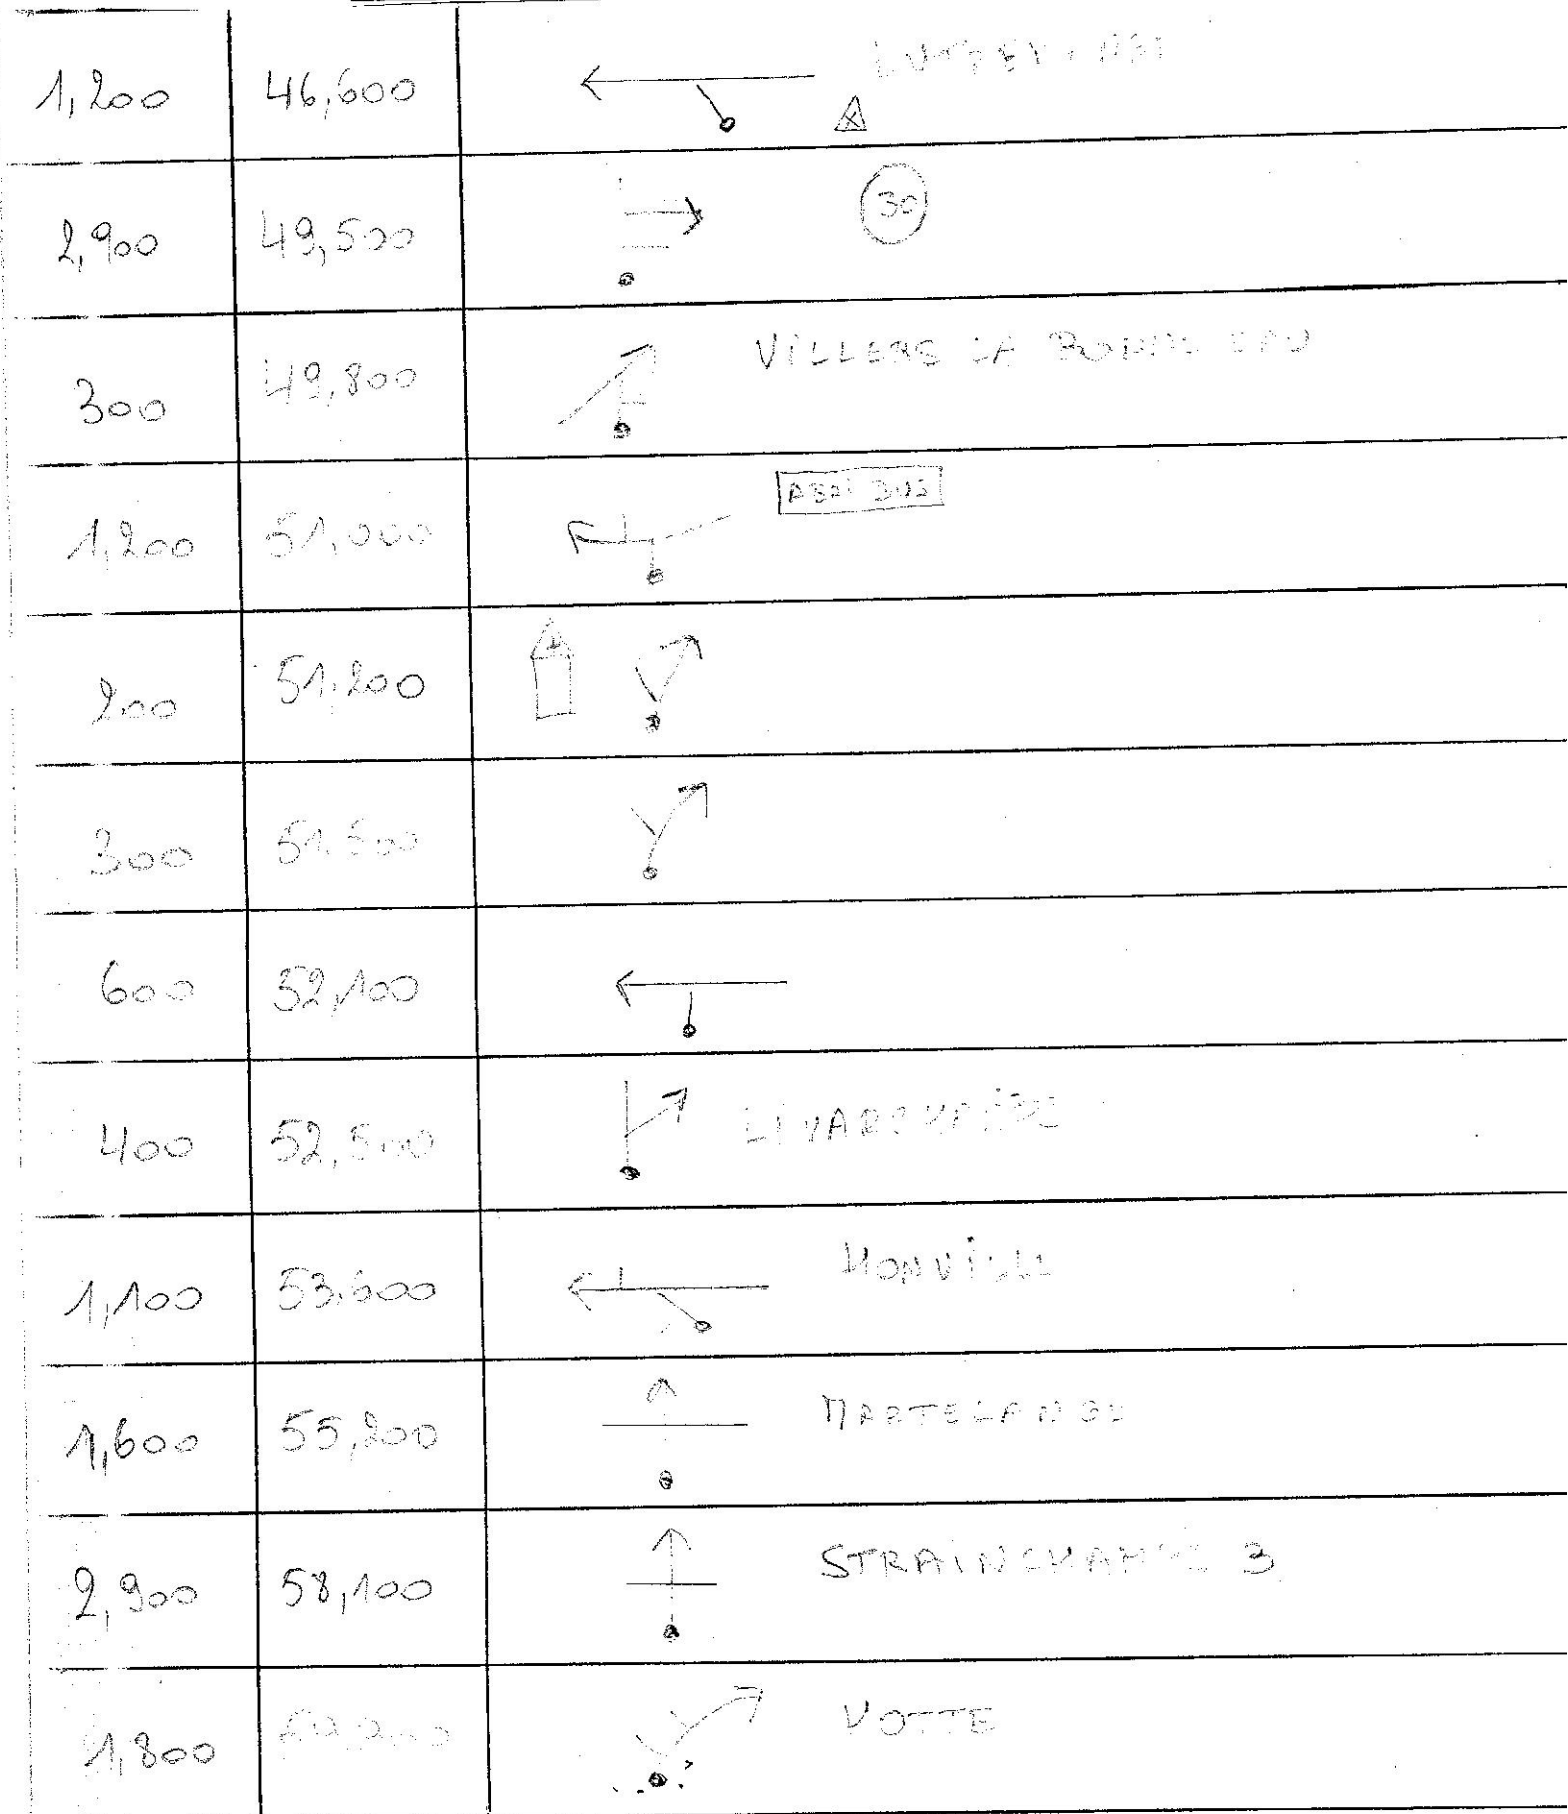 1,200 46,600
2,900 49,500 30
300 49,800 VILLERS LA BONNE EAU
1,200 51,000 ABRI BUS
200 51,200
300 51.500
600 52,100
400 52,500
1,100 53.600 HONVILLE
1,600 55,200 MARTELANGE
2,900 58,100 STRAINCHAMPS 3
1,800 VOTTE